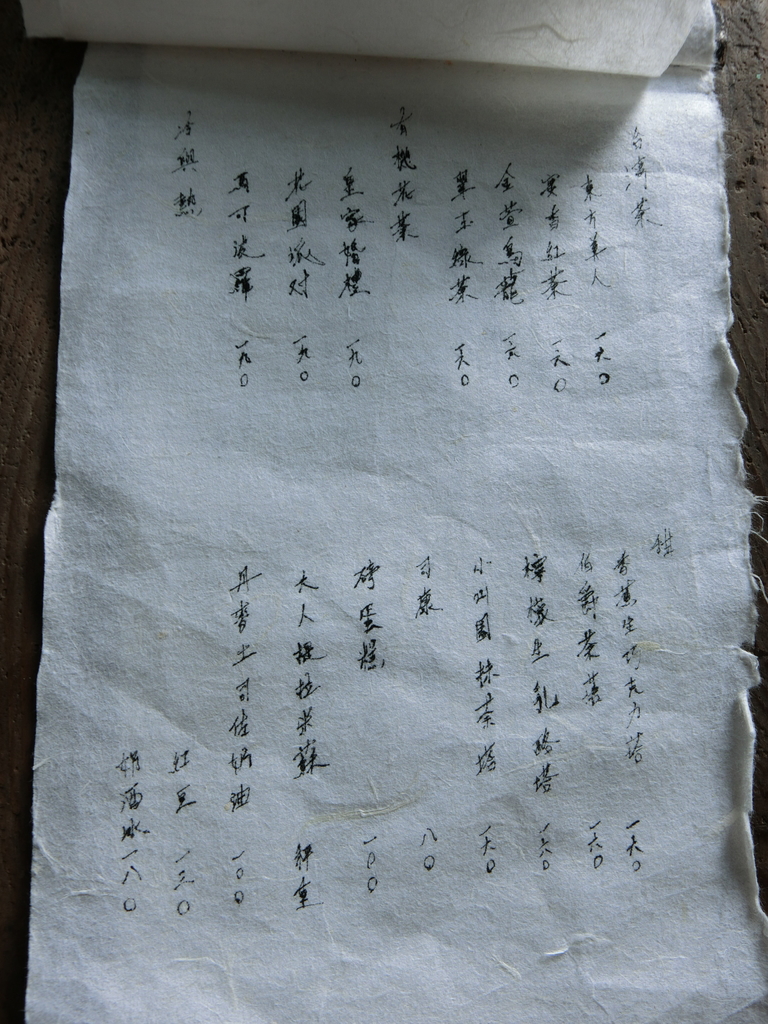 台灣茶
東方美人 一六〇
蜜香紅茶 一六〇
金萱烏龍 一六〇
翠玉綠茶 一六〇
有機花茶
皇家婚禮 一九〇
花園派对 一九〇
馬可波羅 一九〇
冷與熱
甜
香蕉生巧克力塔 一六〇
伯爵茶塔 一六〇
檸檬生乳酪塔 一六〇
小山園抹茶塔 一六〇
司康 八〇
磅蛋糕 一〇〇
大人提拉米蘇 秤重
丹麥土司佐奶油 一〇〇
紅豆 一三〇
奶酒冰 一八〇